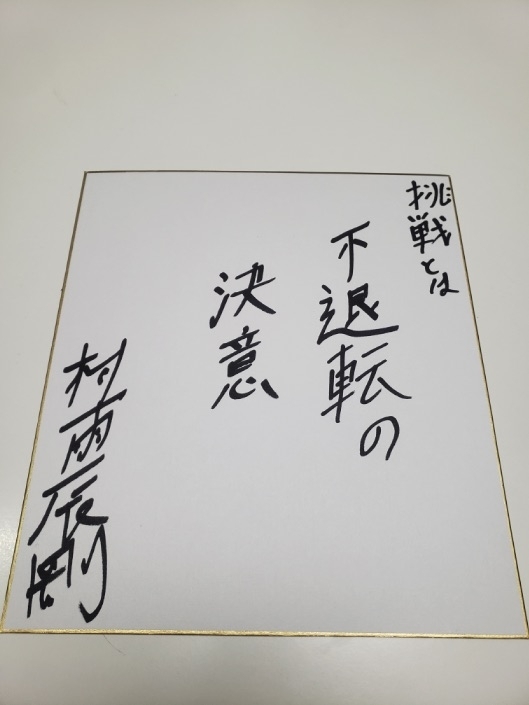 挑戦とは
不退転の
決意
村雨辰剛